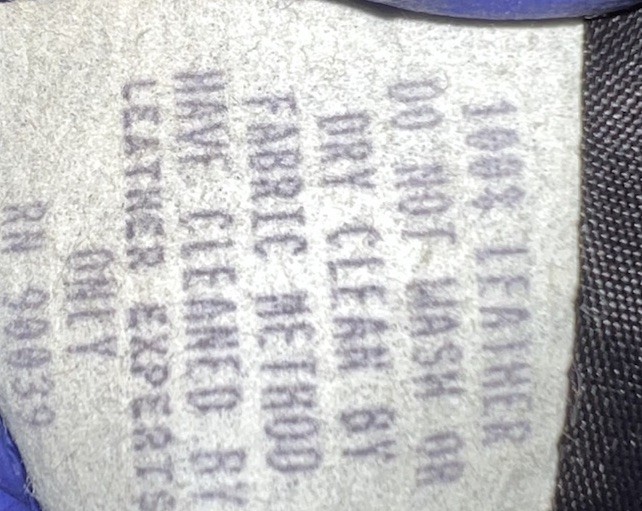 100% LEATHER
DO NOT WASH OR
DRY CLEAN BY
FABRIC METHOD
HAVE CLEANED BY
LEATHER EXPERTS
ONLY
RN 90039